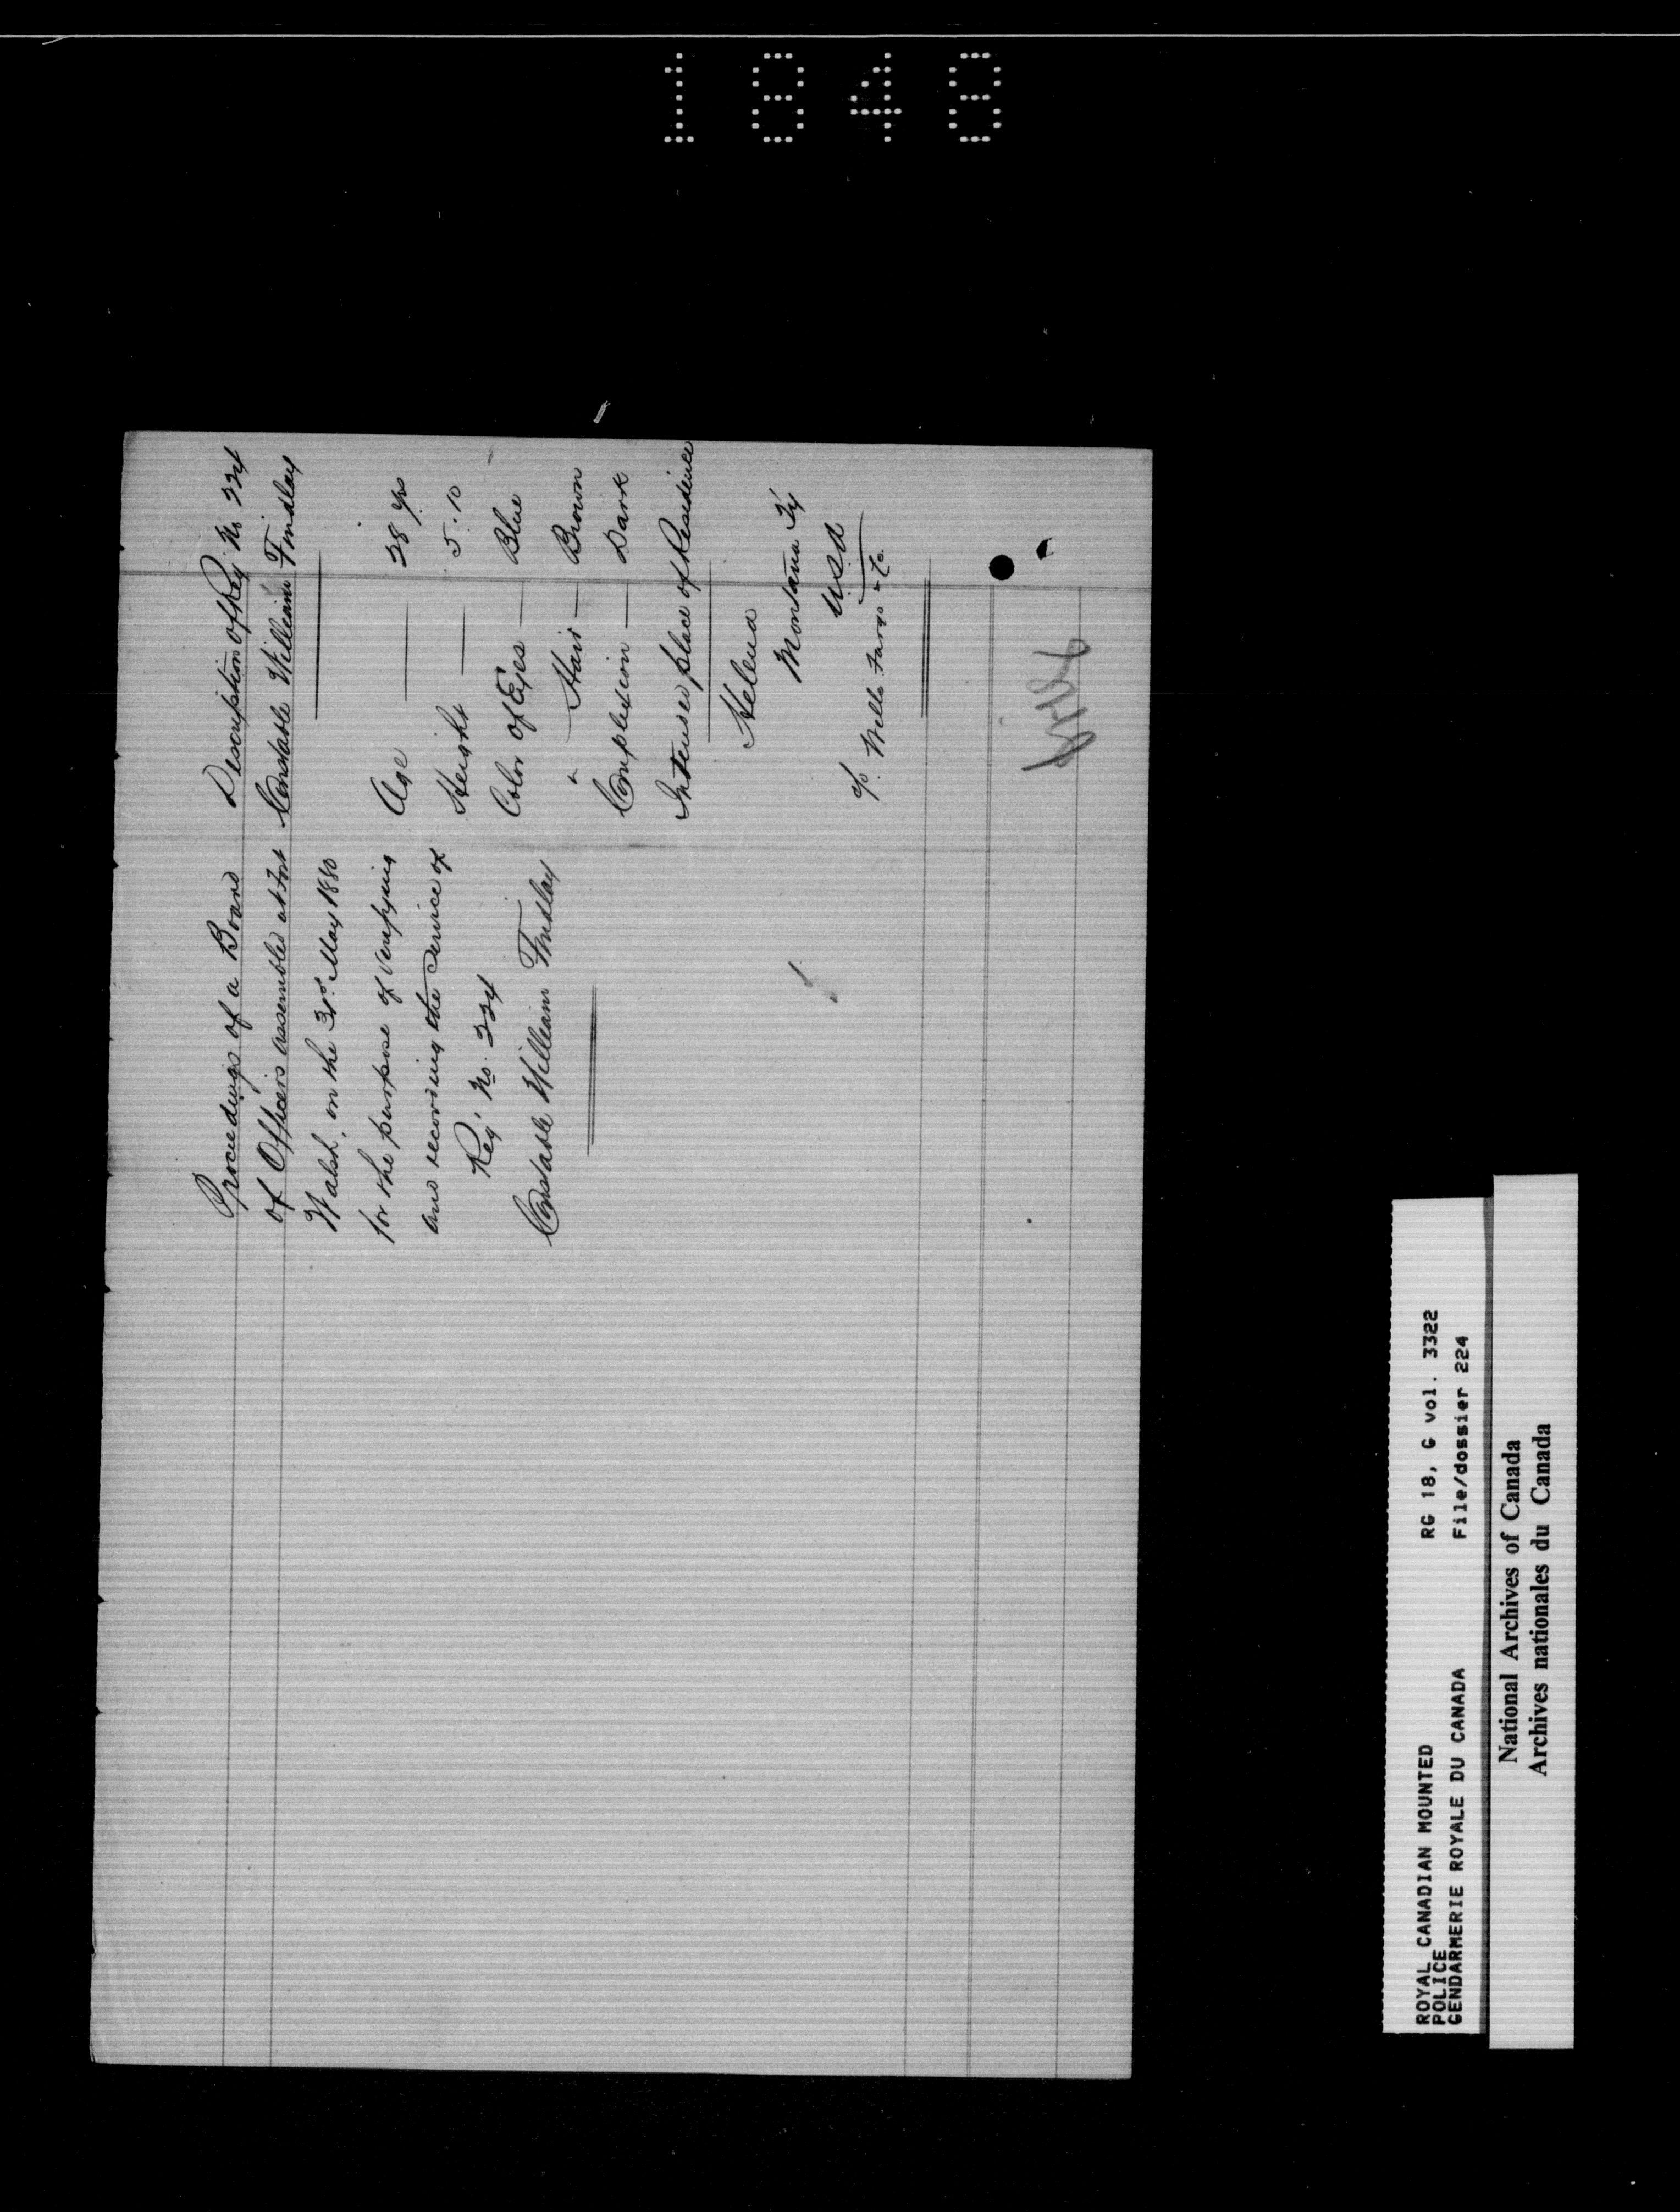 1848
Proceedings of a Board
of Officers assembled at Fort
Walsh, on the 31st May 1880
for the purpose of verifying
and recording the Service of
Reg' No. 224
Constable William Findlay
Description of Reg' No 224
Constable William Findlay
Age — 28 yrs
Height — 5.10
Color of Eyes — Blue
" Hair — Brown
Complexion — Dark
Intended place of Residence
Helena
Montana Ty
USA
c/o Wells Fargo & Co.
ROYAL CANADIAN MOUNTED
POLICE
GENDARMERIE ROYALE DU CANADA
RG 18, G vol. 3322
File/dossier 224
National Archives of Canada
Archives nationales du Canada